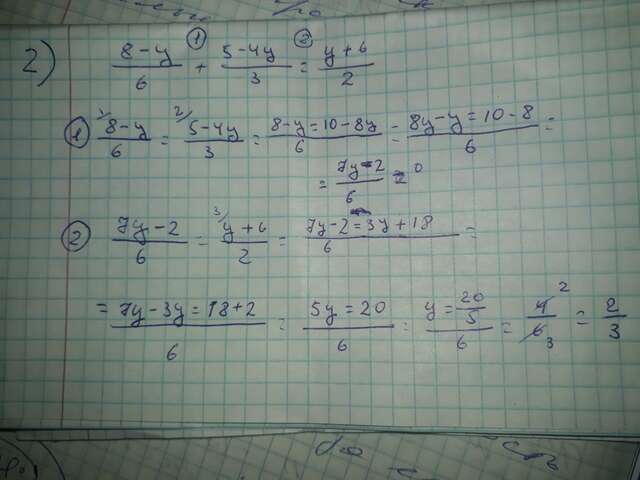 2) (8-y)/6 + (5-4y)/3 = (y+6)/2 ① ②
① 1/ (8-y)/6 = 2/ (5-4y)/3 = (8-y=10-8y)/6 = (8y-y=10-8)/6 =
= (7y-2)/6 = 0
② (7y-2)/6 = 3/ (y+6)/2 = (7y-2=3y+18)/6 =
= (7y-3y=18+2)/6 = (5y=20)/6 = (y=20/5)/6 = 4/6 2 3 = 2/3